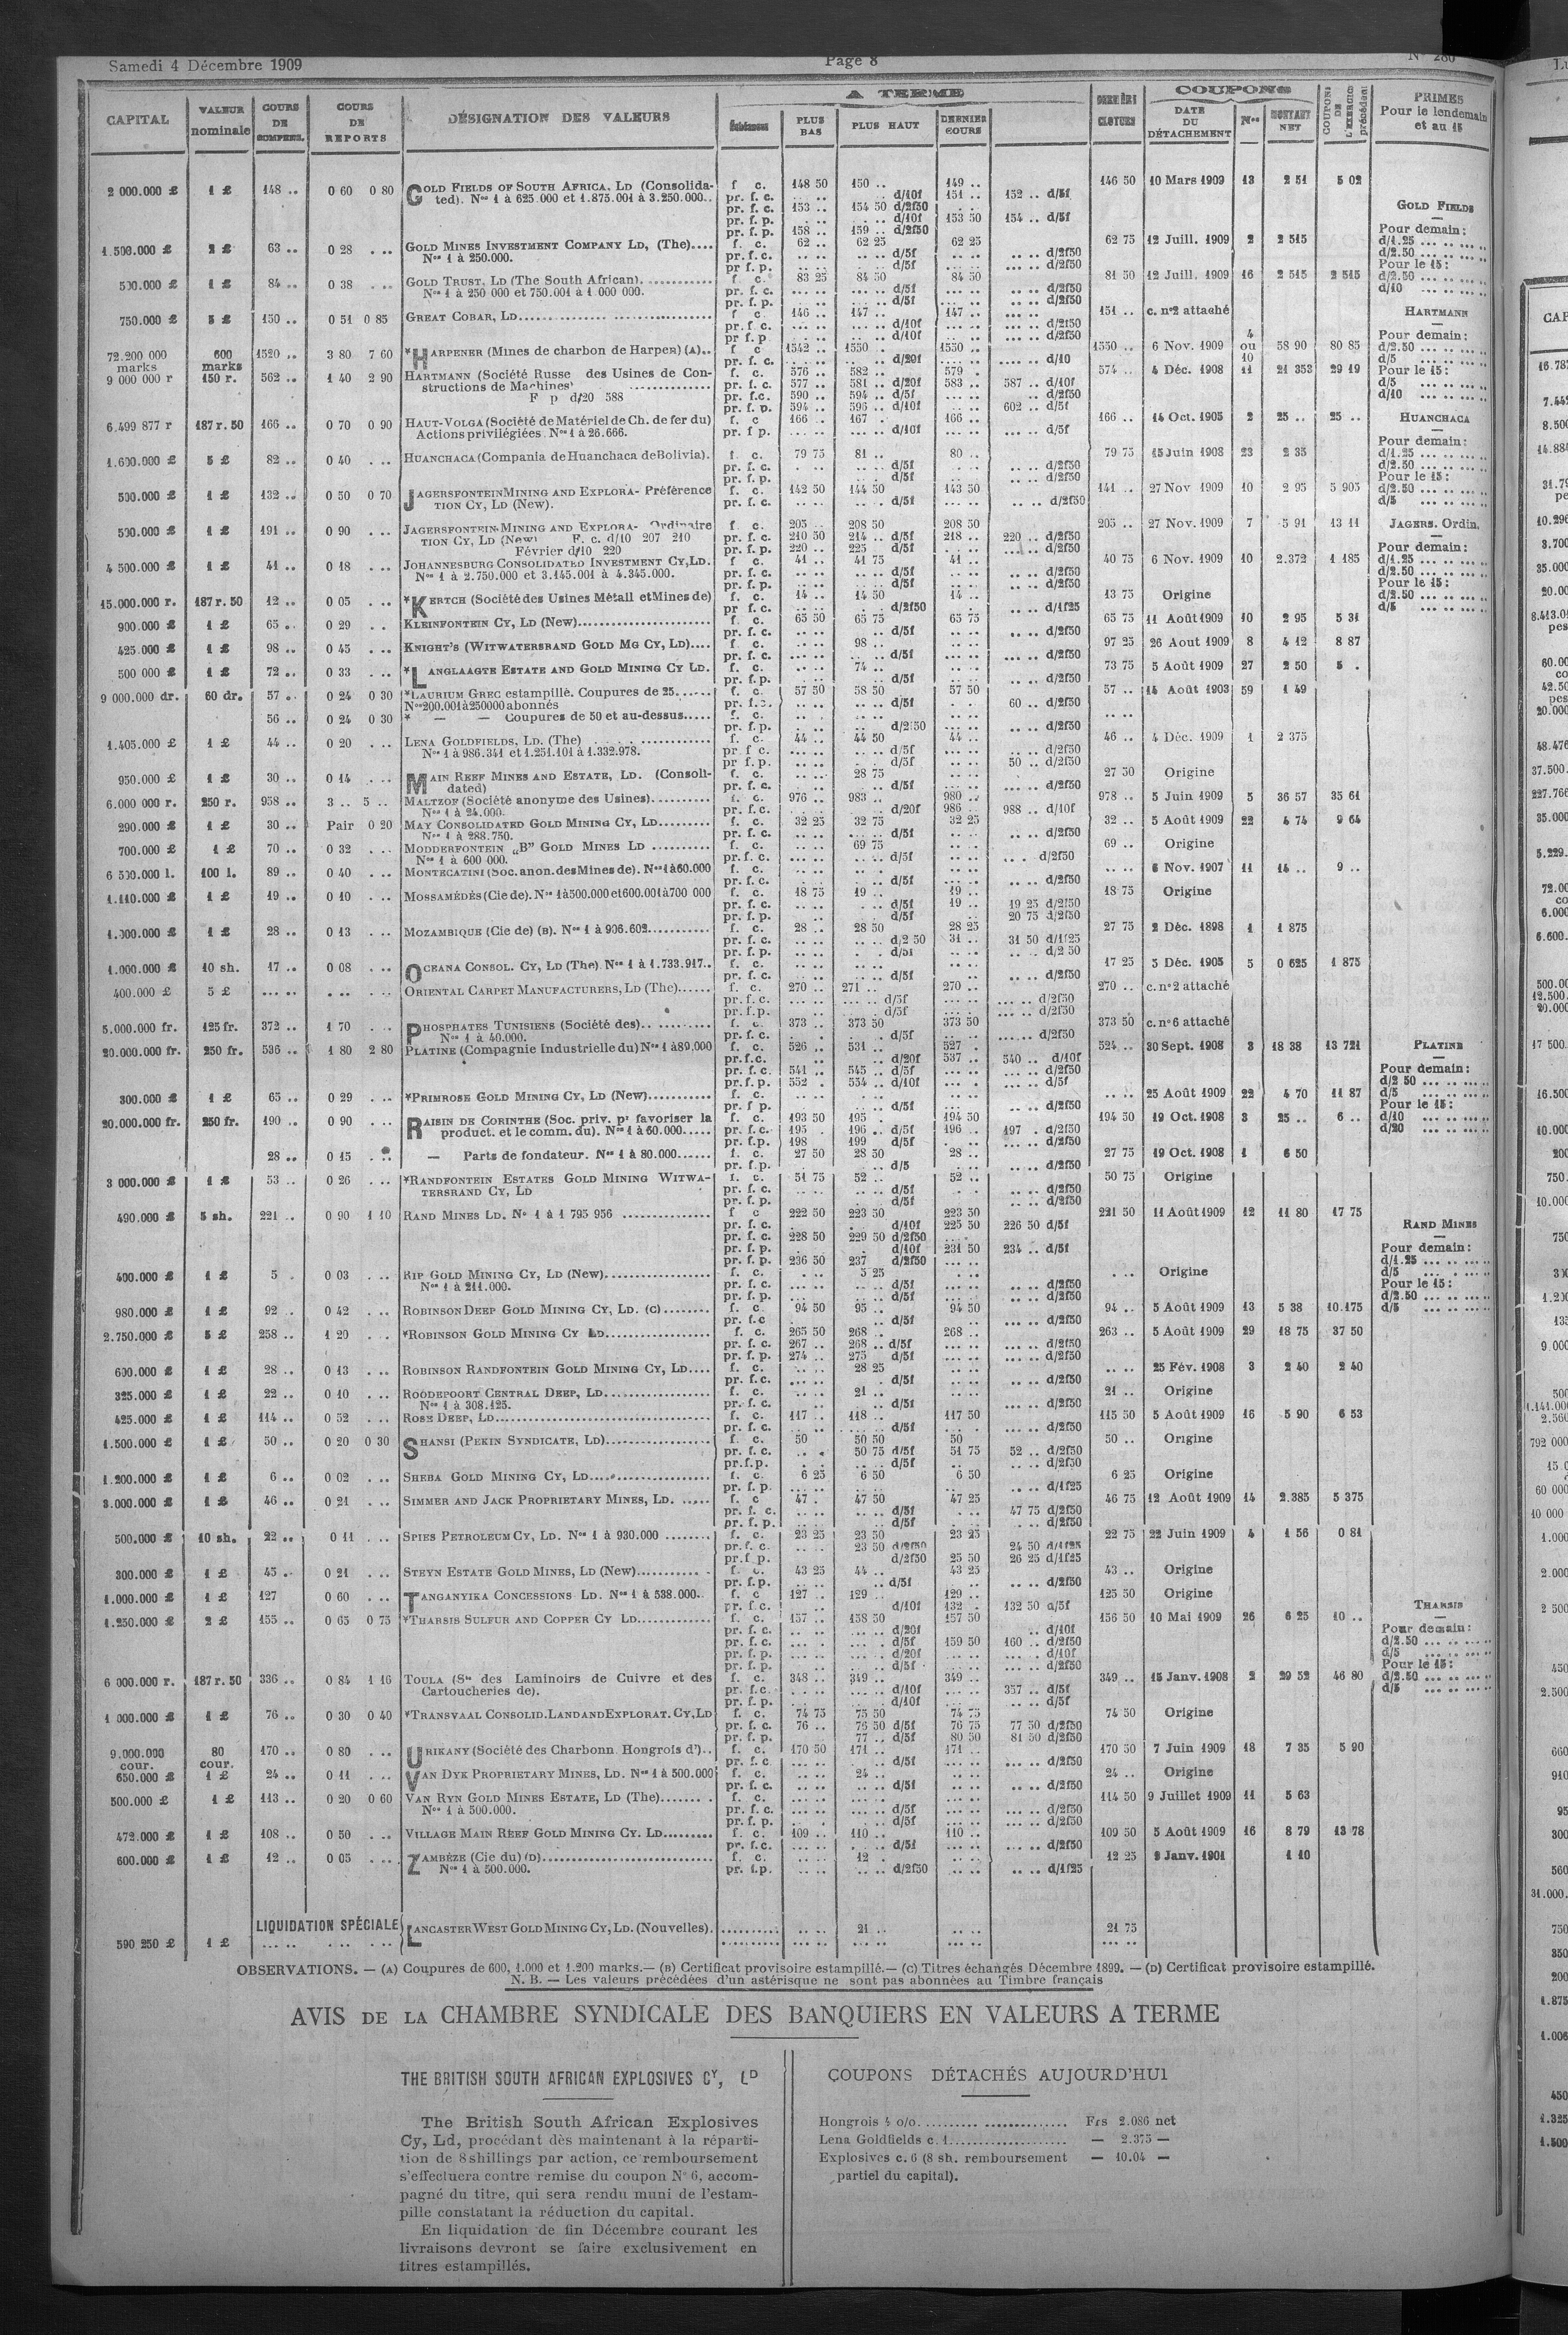 Samedi 4 Décembre 1909
Page 8
N° 280
CAPITAL
VALEUR nominale
COURS DE COMPENS.
COURS DE REPORTS
DÉSIGNATION DES VALEURS
A TERME
PLUS BAS
PLUS HAUT
DERNIER COURS
COUPONS
DATE DU DÉTACHEMENT
Nos
MONTANT NET
COUPONS DE L'EXERCICE précédent
PRIMES Pour le lendemain et au 15
2 000.000 £ 1 £ 148 .. 0 60 0 80 GOLD FIELDS OF SOUTH AFRICA, LD (Consolida- f. c. 148 50 150 .. 149 .. 146 50 10 Mars 1909 13 2 51 5 02
ted). Nos 1 à 625.000 et 1.875.001 à 3.250.000.. pr. f. c. d/10f 151 .. 152 .. d/5f
pr. f. c. 153 .. 154 50 d/2f50
pr. f. p. d/10f 153 50 154 .. d/5f
pr. f. p. 158 .. 159 .. d/2f50
1.500.000 £ 2 £ 63 .. 0 28 GOLD MINES INVESTMENT COMPANY LD, (The).... f. c. 62 .. 62 25 62 25 62 75 12 Juill. 1909 2 2 515
Nos 1 à 250.000. pr. f. c. d/5f d/2f50
pr f. p. d/5f d/2f50
500.000 £ 1 £ 84 .. 0 38 GOLD TRUST, LD (The South African). f. c. 83 25 84 50 84 50 81 50 12 Juill. 1909 16 2 515 2 515
Nos 1 à 250 000 et 750.001 à 1 000 000. pr. f. c. d/5f d/2f50
pr. f. p. d/5f d/2f50
750.000 £ 5 £ 150 .. 0 51 0 85 GREAT COBAR, LD f c 146 .. 147 .. 147 .. 151 .. c. n°2 attaché
pr. f. c. d/10f d/2f50
pr f. p d/10f d/2f50
72.200 000 marks 600 marks 1520 .. 3 80 7 60 *HARPENER (Mines de charbon de Harpen) (A).. f c 1542 .. 1550 . 1550 .. 1550 .. 6 Nov. 1909 4 ou 10 58 90 80 85
pr. f. c. d/20f d/10
9 000 000 r 150 r. 562 .. 1 40 2 90 HARTMANN (Société Russe des Usines de Con- f. c. 576 .. 582 .. 579 . 574 .. 4 Déc. 1908 11 21 353 29 19
structions de Machines) pr. f. c. 577 .. 581 .. d/20f 583 .. 587 .. d/10f
F p d/20 588 pr. f.c. 590 .. 594 .. d/5f d/2f50
pr. f. p. 594 .. 596 .. d/10f 602 .. d/5f
6.499 877 r 187 r. 50 166 .. 0 70 0 90 HAUT-VOLGA (Société de Matériel de Ch. de fer du) f. c 166 .. 167 . 166 .. 166 .. 14 Oct. 1905 2 25 .. 25 ..
Actions privilégiées. Nos 1 à 26.666. pr. f p. d/10f d/5f
1.600.000 £ 5 £ 82 .. 0 40 HUANCHACA (Compania de Huanchaca de Bolivia). f. c. 79 75 81 .. 80 .. 79 75 15 Juin 1908 23 2 35
pr. f. c. d/5f d/2f50
pr. f. p. d/5f d/2f50
500.000 £ 1 £ 132 .. 0 50 0 70 JAGERSFONTEIN MINING AND EXPLORA- Préférence f. c. 142 50 144 50 143 50 141 .. 27 Nov 1909 10 2 95 5 905
TION CY, LD (New). pr. f. c. d/5f d/2f50
500.000 £ 1 £ 191 .. 0 90 JAGERSFONTEIN MINING AND EXPLORA- Ordinaire f c. 205 .. 208 50 208 50 205 .. 27 Nov. 1909 7 5 91 13 11
TION CY, LD (New) F. c. d/10 207 210 pr. f. c. 210 50 214 .. d/5f 218 .. 220 .. d/2f50
Février d/10 220 pr. f. p. 220 .. 225 d/5f d/2f50
4 500.000 £ 1 £ 41 .. 0 18 JOHANNESBURG CONSOLIDATED INVESTMENT CY, LD. f c. 41 .. 41 75 41 .. 40 75 6 Nov. 1909 10 2.372 1 185
Nos 1 à 2.750.000 et 3.145.001 à 4.345.000. pr. f. c. d/5f d/2f50
pr. f. p. d/5f d/2f50
15.000.000 r. 187 r. 50 12 .. 0 05 *KERTCH (Société des Usines Métall et Mines de) f. c. 14 .. 14 50 14 .. 13 75 Origine
pr f. c. d/2f50 d/1f25
900.000 £ 1 £ 65 .. 0 29 KLEINFONTEIN CY, LD (New) f. c. 65 50 65 75 65 75 65 75 11 Août 1909 10 2 95 5 31
pr. f. c. d/5f d/2f50
425.000 £ 1 £ 98 .. 0 45 KNIGHT'S (WITWATERSRAND GOLD MG CY, LD).... f. c. 98 .. 97 25 26 Aout 1909 8 4 12 8 87
pr. f. c. d/5f d/2f50
500 000 £ 1 £ 72 .. 0 33 *LANGLAAGTE ESTATE AND GOLD MINING CY LD. f. c. 74 .. 73 75 5 Août 1909 27 2 50 5 .
pr. f.p. d/5f d/2f50
9 000.000 dr. 60 dr. 57 .. 0 24 0 30 *LAURIUM GREC estampillé. Coupures de 25. f. c. 57 50 58 50 57 50 57 .. 14 Août 1903 59 1 49
Nos 200.001 à 250000 abonnés pr. f.c. d/5f 60 .. d/2f50
56 .. 0 24 0 30 * — — Coupures de 50 et au-dessus f. c.
pr. f.p. d/2 50 d/2f50
1.405.000 £ 1 £ 44 .. 0 20 LENA GOLDFIELDS, LD. (The) f. c. 44 .. 44 50 44 .. 46 .. 4 Déc. 1909 1 2 375
Nos 1 à 986.341 et 1.251.101 à 1.332.978. pr f c. d/5f d/2f50
pr f.p. d/5f 50 .. d/2f50
950.000 £ 1 £ 30 .. 0 14 MAIN REEF MINES AND ESTATE, LD. (Consoli- f. c. 28 75 27 50 Origine
dated) pr. f. c. d/5f d/2f50
6.000 000 r. 250 r. 958 .. 3 .. 5 .. MALTZOF (Société anonyme des Usines) f. c. 976 .. 983 .. 980 .. 978 .. 5 Juin 1909 5 36 57 35 61
Nos 1 à 24.000. pr. f.c. d/20f 986 .. 988 .. d/10f
290.000 £ 1 £ 30 .. Pair 0 20 MAY CONSOLIDATED GOLD MINING CY, LD f. c. 32 25 32 75 32 25 32 .. 5 Août 1909 22 4 74 9 64
Nos 1 à 288.750. pr. f. c. d/5f d/2f50
700.000 £ 1 £ 70 .. 0 32 MODDERFONTEIN „B” GOLD MINES LD f. c. 69 75 69 .. Origine
Nos 1 à 600 000. pr. f. c. d/5f d/2f50
6 500.000 l. 100 l. 89 .. 0 40 MONTECATINI (Soc. anon. des Mines de). Nos 1 à 60.000 f. c. 6 Nov. 1907 11 14 .. 9 ..
pr. f. c. d/5f d/2f50
1.110.000 £ 1 £ 19 .. 0 10 MOSSAMÉDÈS (Cie de). Nos 1 à 500.000 et 600.001 à 700 000 f. c. 18 75 19 .. 19 .. 18 75 Origine
pr. f. c. d/5f 19 .. 19 25 d/2f50
pr. f. p. d/5f 20 75 d/2f50
1.000.000 £ 1 £ 28 .. 0 13 MOZAMBIQUE (Cie de) (B). Nos 1 à 906.602 f. c. 28 .. 28 50 28 25 27 75 2 Déc. 1898 1 1 875
pr. f. c. d/2 50 31 .. 31 50 d/1f25
pr. f. p. d/5f d/2 50
1.000.000 £ 10 sh. 17 .. 0 08 OCEANA CONSOL. CY, LD (The). Nos 1 à 1.733.917.. f. c. 17 25 5 Déc. 1905 5 0 625 1 875
pr. f. c. d/5f d/2f50
400.000 £ 5 £ ORIENTAL CARPET MANUFACTURERS, LD (The) f. c. 270 .. 271 .. 270 .. 270 .. c. n°2 attaché
pr. f. c. d/5f d/2f50
pr. f.p. d/5f d/2f50
5.000.000 fr. 125 fr. 372 .. 1 70 PHOSPHATES TUNISIENS (Société des) f. c. 373 .. 373 50 373 50 373 50 c. n°6 attaché
Nos 1 à 40.000. pr. f. c. d/5f d/2f50
20.000.000 fr. 250 fr. 536 .. 1 80 2 80 PLATINE (Compagnie Industrielle du) Nos 1 à 89.000 f. c. 526 .. 531 .. 527 . 524 .. 30 Sept. 1908 3 18 38 13 721
pr.f.c. d/20f 537 .. 540 .. d/10f
pr. f. c. 541 .. 545 .. d/5f d/2f50
pr. f. p. 552 . 554 .. d/10f d/5f
300.000 £ 1 £ 65 .. 0 29 *PRIMROSE GOLD MINING CY, LD (New) f. c. 25 Août 1909 22 4 70 11 87
pr. f p. d/5f d/2f50
20.000.000 fr. 250 fr. 190 .. 0 90 RAISIN DE CORINTHE (Soc. priv. pr favoriser la f. c. 193 50 195 . 194 50 194 50 19 Oct. 1908 3 25 .. 6 ..
product. et le comm. du). Nos 1 à 60.000 pr. f.c. 195 . 196 .. d/5f 196 .. 197 . d/2f50
pr. f.p. 198 199 d/5f d/2f50
28 .. 0 15 — Parts de fondateur. Nos 1 à 80.000 f. c. 27 50 28 50 28 .. 27 75 19 Oct. 1908 1 6 50
pr. f.p. d/5 d/2f50
3 000.000 £ 1 £ 53 .. 0 26 *RANDFONTEIN ESTATES GOLD MINING WITWA- f. c. 51 75 52 .. 52 .. 50 75 Origine
TERSRAND CY, LD pr. f. c. d/5f d/2f50
pr. f. p. d/5f d/2f50
490.000 £ 5 sh. 221 .. 0 90 1 10 RAND MINES LD. N° 1 à 1 795 956 f c 222 50 223 50 223 50 221 50 11 Août 1909 12 11 80 17 75
pr. f. c. d/10f 225 50 226 50 d/5f
pr. f. c. 228 50 229 50 d/2f50
pr. f. p. d/10f 231 50 234 .. d/5f
pr. f. p. 236 50 237 d/2f50
400.000 £ 1 £ 5 . 0 03 RIP GOLD MINING CY, LD (New) f. c. 5 25 Origine
Nos 1 à 211.000. pr. f. c. d/5f d/2f50
pr. f. p. d/5f d/2f50
980.000 £ 1 £ 92 . 0 42 ROBINSON DEEP GOLD MINING CY, LD. (C) f. c 94 50 95 .. 94 50 94 .. 5 Août 1909 13 5 38 10.175
pr. f.c d/5f d/2f50
2.750.000 £ 5 £ 258 .. 1 20 *ROBINSON GOLD MINING CY LD f. c. 265 50 268 . 268 .. 263 .. 5 Août 1909 29 18 75 37 50
pr. f. c. 267 .. 268 .. d/5f d/2f50
pr. f. p. 274 .. 275 d/5f d/2f50
600.000 £ 1 £ 28 .. 0 13 ROBINSON RANDFONTEIN GOLD MINING CY, LD.... f. c. 28 25 25 Fév. 1908 3 2 40 2 40
pr. f.c. d/5f d/2f50
325.000 £ 1 £ 22 .. 0 10 ROODEPOORT CENTRAL DEEP, LD f. c. 21 .. 21 .. Origine
Nos 1 à 308.125. pr. f. c. d/5f d/2f50
425.000 £ 1 £ 114 .. 0 52 ROSE DEEP, LD f. c. 117 .. 118 .. 117 50 115 50 5 Août 1909 16 5 90 6 53
pr. f. c. d/5f d/2f50
1.500.000 £ 1 £ 50 .. 0 20 0 30 SHANSI (PEKIN SYNDICATE, LD) f. c. 50 50 50 50 50 .. Origine
pr. f. c. 50 75 d/5f 51 75 52 .. d/2f50
pr.f.p. d/5f d/2f50
1.200.000 £ 1 £ 6 .. 0 02 SHEBA GOLD MINING CY, LD f. c. 6 25 6 50 6 50 6 25 Origine
pr. f. p. d/1f25
3.000.000 £ 1 £ 46 .. 0 21 SIMMER AND JACK PROPRIETARY MINES, LD. f. c 47 . 47 50 47 25 46 75 12 Août 1909 14 2.385 5 375
pr. f. c. d/5f 47 75 d/2f50
pr. f. p. d/5f d/2f50
500.000 £ 10 sh. 22 .. 0 11 SPIES PETROLEUM CY, LD. Nos 1 à 930.000 f. c. 23 25 23 50 23 25 22 75 22 Juin 1909 4 1 56 0 81
pr. f. c. 23 50 d/2f50 24 50 d/1f25
pr.f p. d/2f50 25 50 26 25 d/1f25
300.000 £ 1 £ 45 .. 0 21 STEYN ESTATE GOLD MINES, LD (New) f. c. 43 25 44 .. 43 25 43 .. Origine
pr. f. p. d/5f d/2f50
1.000.000 £ 1 £ 127 0 60 TANGANYIKA CONCESSIONS LD. Nos 1 à 538.000.. f. c 127 .. 129 .. 129 .. 125 50 Origine
pr. f. c. d/10f 132 . 132 50 d/5f
1.250.000 £ 2 £ 155 .. 0 65 0 75 *THARSIS SULFUR AND COPPER CY LD f. c. 157 .. 158 50 157 50 156 50 10 Mai 1909 26 6 25 10 ..
pr. f. c. d/20f d/10f
pr. f. c. d/5f 159 50 160 .. d/2f50
pr. f. p. d/20f d/10f
pr. f. p. d/5f d/2f50
6 000.000 r. 187 r. 50 336 .. 0 84 1 16 TOULA (Sté des Laminoirs de Cuivre et des f. c. 348 .. 349 .. 349 .. 349 .. 15 Janv. 1908 2 29 52 46 80
Cartoucheries de). pr. f.c. d/10f 357 .. d/5f
pr. f. p. d/10f d/5f
1 000.000 £ 1 £ 76 .. 0 30 0 40 *TRANSVAAL CONSOLID. LAND AND EXPLORAT. CY, LD f. c. 74 75 75 50 74 75 74 50 Origine
pr. f. c. 76 .. 76 50 d/5f 76 75 77 50 d/2f50
pr. f. p. 77 .. d/5f 80 50 81 50 d/2f50
9.000.000 cour. 80 cour. 170 .. 0 80 URIKANY (Société des Charbonn. Hongrois d').. f. c. 170 50 171 .. 171 .. 170 50 7 Juin 1909 18 7 35 5 90
pr. f. c d/5f d/2f50
650.000 £ 1 £ 24 .. 0 11 VAN DYK PROPRIETARY MINES, LD. Nos 1 à 500.000 f. c. 24 .. 24 .. Origine
pr. f. c. d/5f d/2f50
500.000 £ 1 £ 113 .. 0 20 0 60 VAN RYN GOLD MINES ESTATE, LD (The) f. c. 114 50 9 Juillet 1909 11 5 63
Nos 1 à 500.000. pr. f. c. d/5f d/2f50
pr. f. p. d/5f d/2f50
472.000 £ 1 £ 108 .. 0 50 VILLAGE MAIN REEF GOLD MINING CY. LD f. c. 109 .. 110 .. 110 .. 109 50 5 Août 1909 16 8 79 13 78
pr. f.c. d/5f d/2f50
600.000 £ 1 £ 12 .. 0 05 ZAMBÈZE (Cie du) (D) f. c. 12 . 12 25 2 Janv. 1901 1 10
Nos 1 à 500.000. pr. f.p. d/2f50 d/1f25
LIQUIDATION SPÉCIALE
590 250 £ 1 £ LANCASTER WEST GOLD MINING CY, LD. (Nouvelles). 21 .. 21 75
GOLD FIELDS
Pour demain:
d/1.25
d/2.50
Pour le 15:
d/2.50
d/10
HARTMANN
Pour demain:
d/2.50
d/5
Pour le 15:
d/5
d/10
HUANCHACA
Pour demain:
d/1.25
d/2.50
Pour le 15:
d/2.50
d/5
JAGERS. Ordin.
Pour demain:
d/1.25
d/2.50
Pour le 15:
d/2.50
d/5
PLATINE
Pour demain:
d/2 50
d/5
Pour le 15:
d/10
d/20
RAND MINES
Pour demain:
d/1.25
d/5
Pour le 15:
d/2.50
d/5
THARSIS
Pour demain:
d/2.50
d/5
Pour le 15:
d/2.50
d/5
OBSERVATIONS. — (A) Coupures de 600, 1.000 et 1.200 marks.— (B) Certificat provisoire estampillé.— (C) Titres échangés Décembre 1899. — (D) Certificat provisoire estampillé.
N. B. — Les valeurs précédées d'un astérisque ne sont pas abonnées au Timbre français
AVIS DE LA CHAMBRE SYNDICALE DES BANQUIERS EN VALEURS A TERME
THE BRITISH SOUTH AFRICAN EXPLOSIVES CY, LD
The British South African Explosives
Cy, Ld, procédant dès maintenant à la réparti-
tion de 8 shillings par action, ce remboursement
s'effectuera contre remise du coupon N° 6, accom-
pagné du titre, qui sera rendu muni de l'estam-
pille constatant la réduction du capital.
En liquidation de fin Décembre courant les
livraisons devront se faire exclusivement en
titres estampillés.
COUPONS DÉTACHÉS AUJOURD'HUI
Hongrois 4 o/o. Frs 2.086 net
Lena Goldfields c. 1. — 2.375 —
Explosives c. 6 (8 sh. remboursement — 10.04 —
partiel du capital).